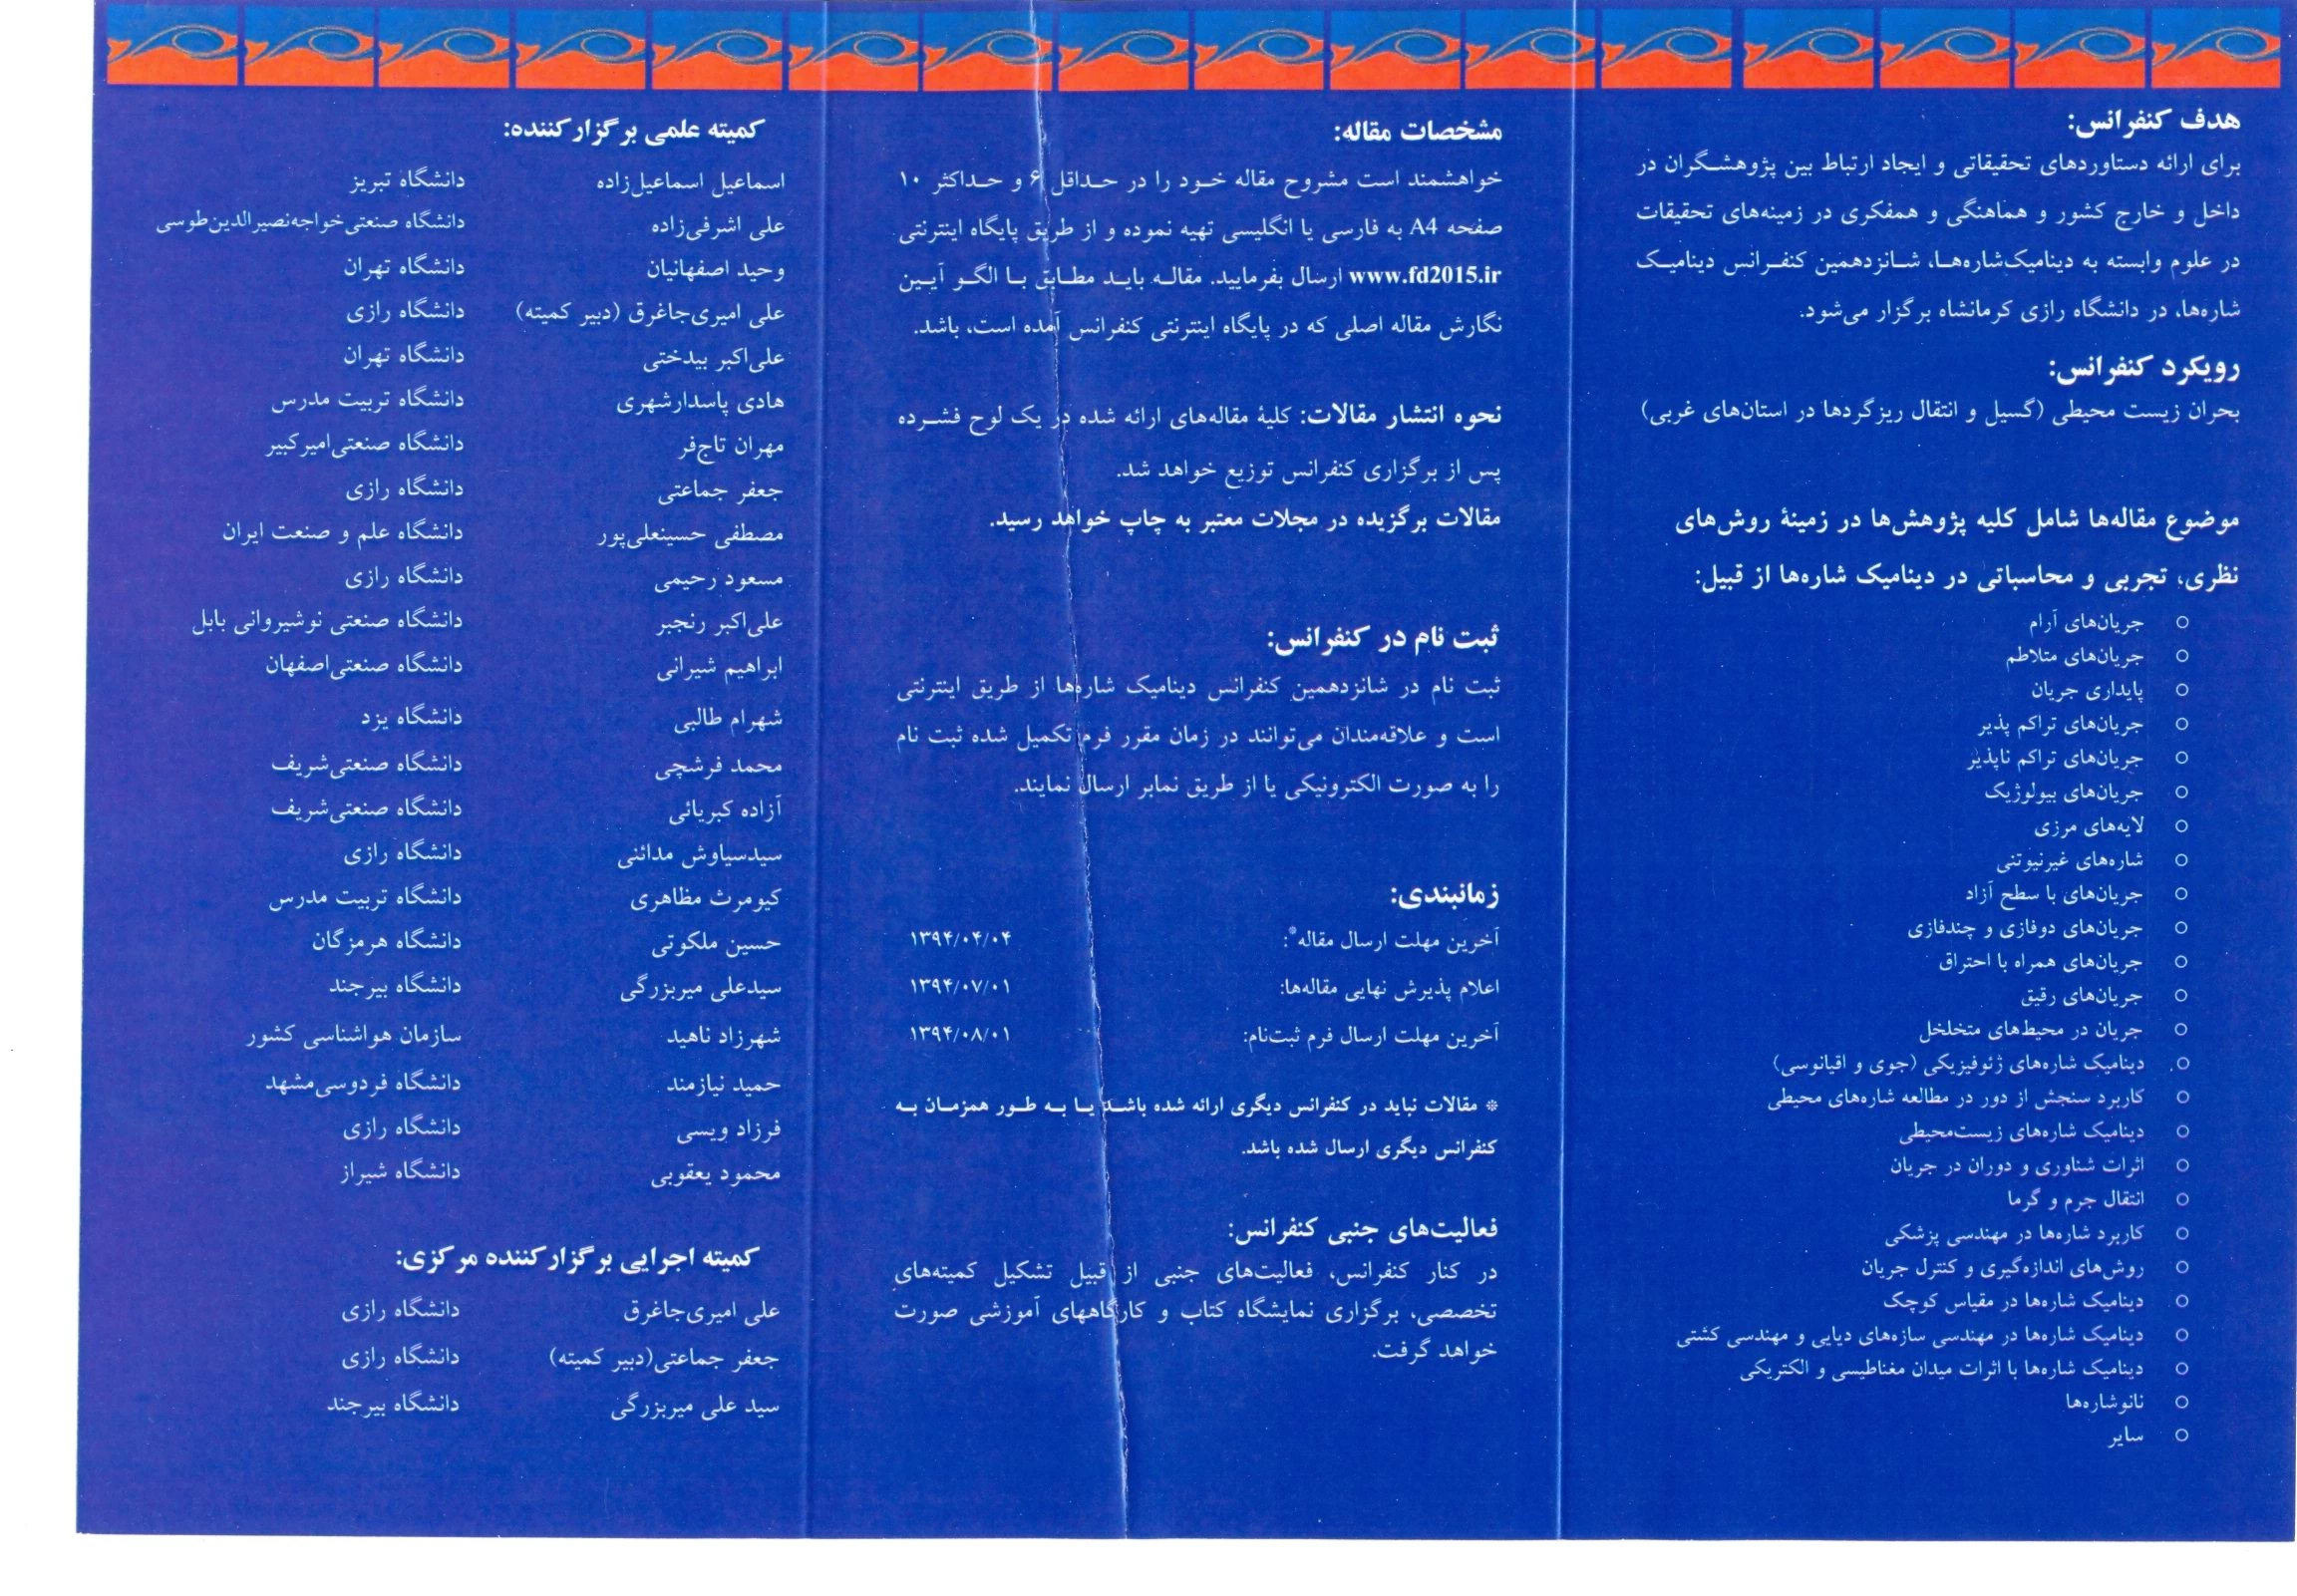 هدف کنفرانس:
برای ارائه دستاوردهای تحقیقاتی و ایجاد ارتباط بین پژوهشگران در
داخل و خارج کشور و هماهنگی و همفکری در زمینه‌های تحقیقات
در علوم وابسته به دینامیک‌شاره‌ها، شانزدهمین کنفرانس دینامیک
شاره‌ها، در دانشگاه رازی کرمانشاه برگزار می‌شود.
رویکرد کنفرانس:
بحران زیست محیطی (گسیل و انتقال ریزگردها در استان‌های غربی)
موضوع مقاله‌ها شامل کلیه پژوهش‌ها در زمینهٔ روش‌های
نظری، تجربی و محاسباتی در دینامیک شاره‌ها از قبیل:
○ جریان‌های آرام
○ جریان‌های متلاطم
○ پایداری جریان
○ جریان‌های تراکم پذیر
○ جریان‌های تراکم ناپذیر
○ جریان‌های بیولوژیک
○ لایه‌های مرزی
○ شاره‌های غیرنیوتنی
○ جریان‌های با سطح آزاد
○ جریان‌های دوفازی و چندفازی
○ جریان‌های همراه با احتراق
○ جریان‌های رقیق
○ جریان در محیط‌های متخلخل
○ دینامیک شاره‌های ژئوفیزیکی (جوی و اقیانوسی)
○ کاربرد سنجش از دور در مطالعه شاره‌های محیطی
○ دینامیک شاره‌های زیست‌محیطی
○ اثرات شناوری و دوران در جریان
○ انتقال جرم و گرما
○ کاربرد شاره‌ها در مهندسی پزشکی
○ روش‌های اندازه‌گیری و کنترل جریان
○ دینامیک شاره‌ها در مقیاس کوچک
○ دینامیک شاره‌ها در مهندسی سازه‌های دیایی و مهندسی کشتی
○ دینامیک شاره‌ها با اثرات میدان مغناطیسی و الکتریکی
○ نانوشاره‌ها
○ سایر
مشخصات مقاله:
خواهشمند است مشروح مقاله خود را در حداقل ۶ و حداکثر ۱۰
صفحه A4 به فارسی یا انگلیسی تهیه نموده و از طریق پایگاه اینترنتی
www.fd2015.ir ارسال بفرمایید. مقاله باید مطابق با الگو آیین
نگارش مقاله اصلی که در پایگاه اینترنتی کنفرانس آمده است، باشد.
نحوه انتشار مقالات: کلیهٔ مقاله‌های ارائه شده در یک لوح فشرده
پس از برگزاری کنفرانس توزیع خواهد شد.
مقالات برگزیده در مجلات معتبر به چاپ خواهد رسید.
ثبت نام در کنفرانس:
ثبت نام در شانزدهمین کنفرانس دینامیک شاره‌ها از طریق اینترنتی
است و علاقه‌مندان می‌توانند در زمان مقرر فرم تکمیل شده ثبت نام
را به صورت الکترونیکی یا از طریق نمابر ارسال نمایند.
زمانبندی:
آخرین مهلت ارسال مقاله*: ۱۳۹۴/۰۴/۰۴
اعلام پذیرش نهایی مقاله‌ها: ۱۳۹۴/۰۷/۰۱
آخرین مهلت ارسال فرم ثبت‌نام: ۱۳۹۴/۰۸/۰۱
* مقالات نباید در کنفرانس دیگری ارائه شده باشد یا به طور همزمان به
کنفرانس دیگری ارسال شده باشد.
فعالیت‌های جنبی کنفرانس:
در کنار کنفرانس، فعالیت‌های جنبی از قبیل تشکیل کمیته‌های
تخصصی، برگزاری نمایشگاه کتاب و کارگاههای آموزشی صورت
خواهد گرفت.
کمیته علمی برگزارکننده:
اسماعیل اسماعیل‌زاده دانشگاه تبریز
علی اشرفی‌زاده دانشگاه صنعتی‌خواجه‌نصیرالدین‌طوسی
وحید اصفهانیان دانشگاه تهران
علی امیری‌جاغرق (دبیر کمیته) دانشگاه رازی
علی‌اکبر بیدختی دانشگاه تهران
هادی پاسدارشهری دانشگاه تربیت مدرس
مهران تاج‌فر دانشگاه صنعتی‌امیرکبیر
جعفر جماعتی دانشگاه رازی
مصطفی حسینعلی‌پور دانشگاه علم و صنعت ایران
مسعود رحیمی دانشگاه رازی
علی‌اکبر رنجبر دانشگاه صنعتی نوشیروانی بابل
ابراهیم شیرانی دانشگاه صنعتی‌اصفهان
شهرام طالبی دانشگاه یزد
محمد فرشچی دانشگاه صنعتی‌شریف
آزاده کبریائی دانشگاه صنعتی‌شریف
سیدسیاوش مدائنی دانشگاه رازی
کیومرث مظاهری دانشگاه تربیت مدرس
حسین ملکوتی دانشگاه هرمزگان
سیدعلی میربزرگی دانشگاه بیرجند
شهرزاد ناهید سازمان هواشناسی کشور
حمید نیازمند دانشگاه فردوسی‌مشهد
فرزاد ویسی دانشگاه رازی
محمود یعقوبی دانشگاه شیراز
کمیته اجرایی برگزارکننده مرکزی:
علی امیری‌جاغرق دانشگاه رازی
جعفر جماعتی(دبیر کمیته) دانشگاه رازی
سید علی میربزرگی دانشگاه بیرجند